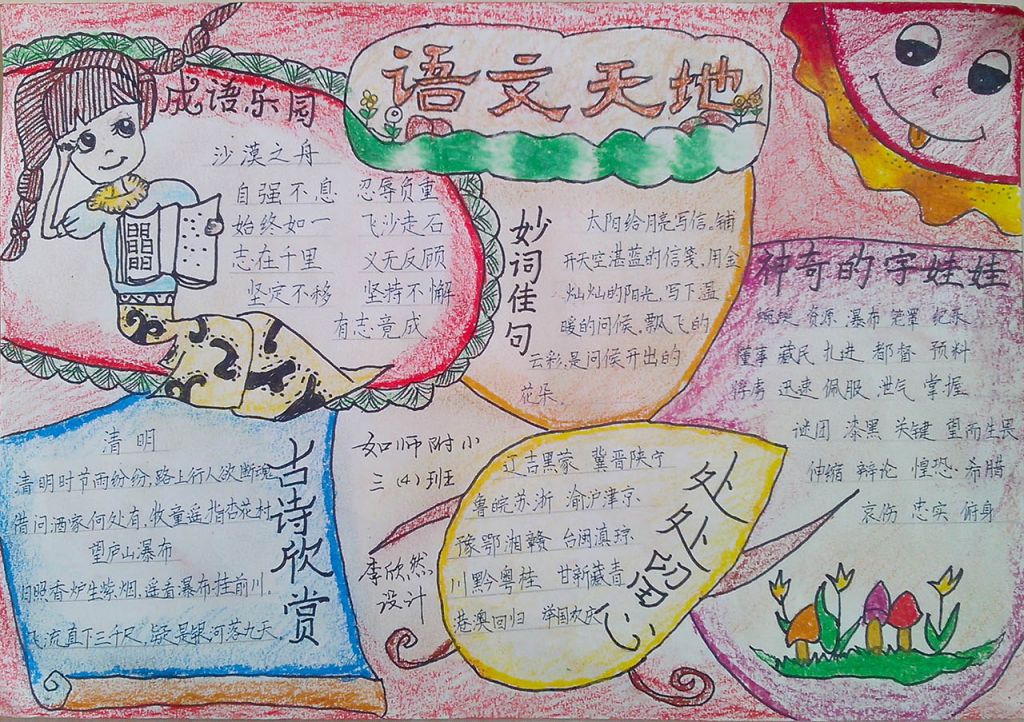 语文天地
成语乐园
沙漠之舟
自强不息 忍辱负重
始终如一 飞沙走石
志在千里 义无反顾
坚定不移 坚持不懈
有志竟成
妙词佳句
太阳给月亮写信。铺
开天空湛蓝的信笺,用金
灿灿的阳光,写下温
暖的问候,飘飞的
云彩,是问候开出的
花朵。
神奇的字娃娃
资源 瀑布 笼罩 纪录
董事 藏民 扎进 都督 预料
迅速 佩服 泄气 掌握
谜团 漆黑 关键 望而生畏
伸缩 辩论 惶恐 希腊
哀伤 忠实 俯身
古诗欣赏
清明
清明时节雨纷纷,路上行人欲断魂
借问酒家何处有,牧童遥指杏花村
望庐山瀑布
日照香炉生紫烟,遥看瀑布挂前川。
飞流直下三千尺,疑是银河落九天。
如师附小
三(4)班
李欣然
设计
处处留心
辽吉黑蒙 冀晋陕宁
鲁皖苏浙 渝沪津京
豫鄂湘赣 台闽滇琼
川黔粤桂 甘新藏青
港澳回归 举国欢庆